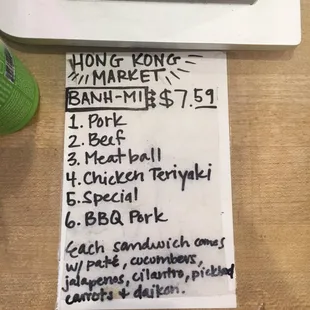 HONG KONG
MARKET
BANH-MI: $7.59
1. Pork
2. Beef
3. Meatball
4. Chicken Teriyaki
5. Special
6. BBQ Pork
Each sandwich comes
w/ paté, cucumbers,
jalapenos, cilantro, pickled
carrots + daikon.